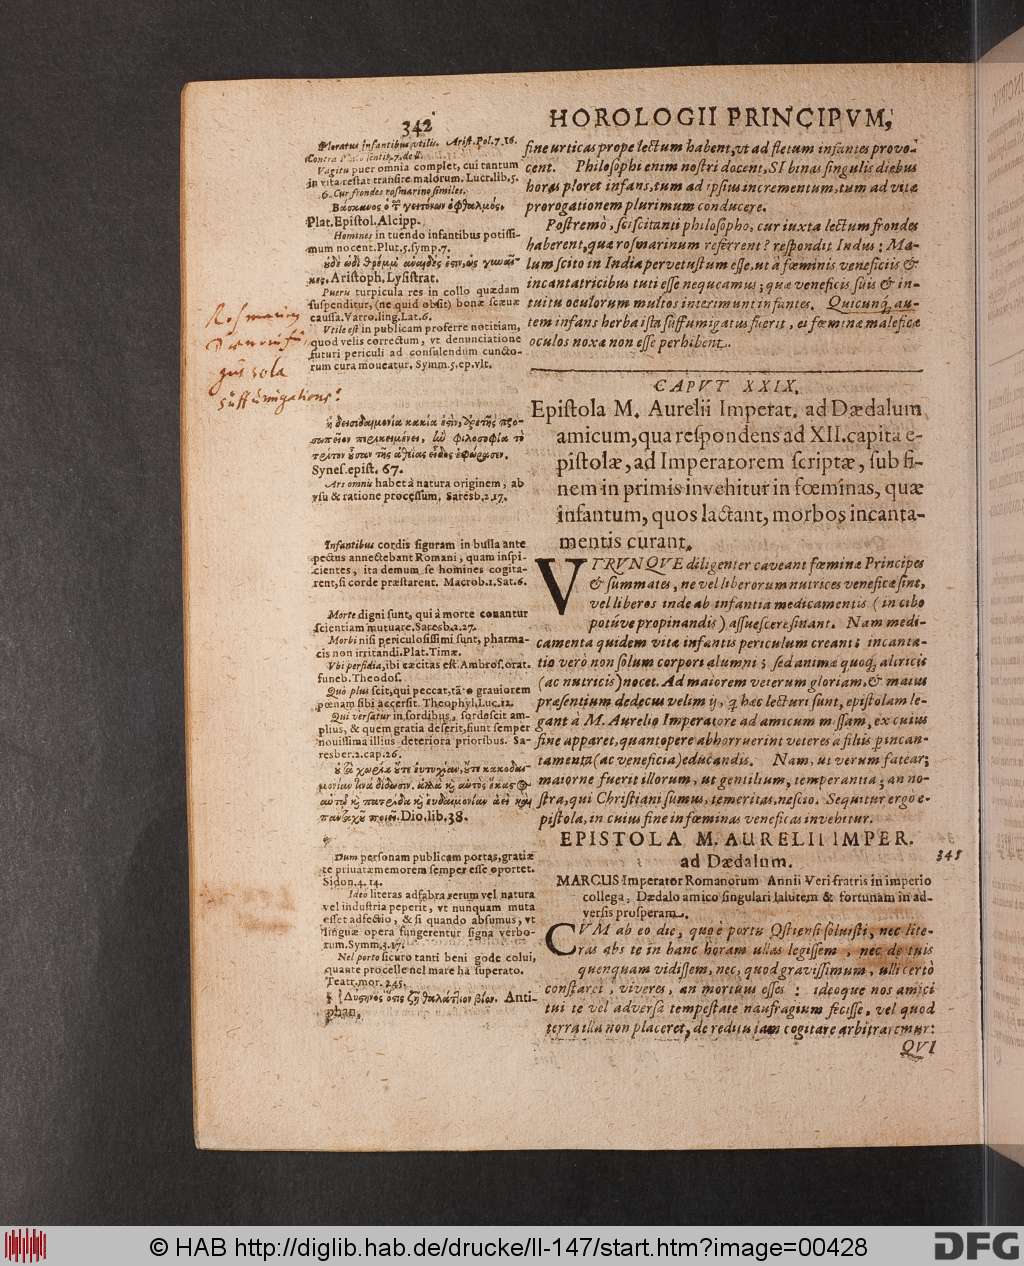 342
HOROLOGII PRINCIPVM,
Ploratus infantibus utilis. Arist. Pol. 7. 16.
Vagitu puer omnia complet, cui tantum
in vita restat transire malorum. Lucr. lib. 5.
6. Cur frondes rosmarino similes.
Plat. Epistol. Alcipp.
Homines in tuendo infantibus potissi-
mum nocent. Plut. 5. symp. 7.
Aristoph. Lysistrat.
Pueris turpicula res in collo quædam
suspenditur, (ne quid obsit) bonæ scævæ
caussa. Varro. ling. Lat. 6.
Vtile est in publicam proferre notitiam,
quod velis correctum, vt denunciatione
futuri periculi ad consulendum cuncto-
rum cura moueatur. Symm. 5. ep. vlt.
Rosmarin
sola
suffumigations?
Synes. epist. 67.
Ars omnis habet à natura originem, ab
vsu & ratione processum, Saresb. 2. 17.
Infantibus cordis figuram in bulla ante
pectus annectebant Romani, quam inspi-
cientes, ita demum se homines cogita-
rent, si corde præstarent. Macrob. 1. Sat. 6.
Morte digni sunt, qui à morte conantur
scientiam mutuare. Saresb. 2. 27.
Morbi nisi periculosissimi sunt, pharma-
cis non irritandi. Plat. Timæ.
Vbi perfidia, ibi cæcitas est. Ambros. orat.
funeb. Theodos.
Quò plus scit, qui peccat, tātò grauiorem
pœnam sibi accersit. Theophyl. Luc. 12.
Qui versatur in sordibus, sordescit am-
plius, & quem gratia deserit, fiunt semper
nouissima illius deteriora prioribus. Sa-
resber. 2. cap. 26.
Dio. lib. 38.
Dum personam publicam portas, gratiæ
te priuatæ memorem semper esse oportet.
Sidon. 4. 14.
Ideo literas adfabra rerum vel natura
vel industria peperit, vt nunquam muta
esset adfectio, & si quando absumus, vt
linguæ opera fungerentur signa verbo-
rum. Symm. 3. 17.
Nel porto sicuro tanti beni gode colui,
quante procelle nel mare hà superato.
Teatr. mor. 245.
Anti-
phan.
sine urticas prope lectum habent, ut ad fletum infantes provo-
cent. Philosophi enim nostri docent, SI binas singulis diebus
horas ploret infans, tum ad ipsius incrementum, tum ad vitæ
prorogationem plurimum conducere.
Postremò, sciscitanti philosopho, cur iuxta lectum frondes
haberent, quæ rosmarinum referrent? respondit Indus: Ma-
lum scito in India pervetustum esse, ut à fœminis veneficiis &
incantatricibus tuti esse nequeamus; quæ veneficiis suis & in-
tuitu oculorum multos interimunt infantes. Quicunq́; au-
tem infans herba ista suffumigatus fuerit, ei fœminæ maleficæ
oculos noxæ non esse perhibent.
CAPVT XXIX.
Epistola M. Aurelii Imperat. ad Dædalum
amicum, qua respondens ad XII. capita e-
pistolæ, ad Imperatorem scriptæ, sub fi-
nem in primis invehitur in fœminas, quæ
infantum, quos lactant, morbos incanta-
mentis curant.
VTRVNQVE diligenter caveant fœminæ Principes
& summates, ne vel liberorum nutrices veneficæ sint,
vel liberos inde ab infantia medicamentis (in cibo
potuve propinandis) assuescere sinant. Nam medi-
camenta quidem vitæ infantis periculum creant; incanta-
tio verò non solùm corpori alumni; sed animæ quoq́; altricis
(ac nutricis) nocet. Ad maiorem veterum gloriam, & maius
præsentium dedecus velim ij, q hæc lecturi sunt, epistolam le-
gant à M. Aurelio Imperatore ad amicum missam, ex cuius
fine apparet, quantopere abhorruerint veteres à filiis p incan-
tamenta (ac veneficia) educandis. Nam, ut verum fatear;
maiorne fuerit illorum, ut gentilium, temperantia; an no-
stra, qui Christiani sumus, temeritas, nescio. Sequitur ergò e-
pistola, in cuius fine in fœminas veneficas invehitur.
EPISTOLA M. AURELII IMPER.
ad Dædalum.
348
MARCUS Imperator Romanorum Annii Veri fratris in imperio
collega, Dædalo amico singulari salutem & fortunam in ad-
versis prosperam.
CVM ab eo die, quo è portu Ostiensi solvisti, nec lite-
ras abs te in hanc horam ullas legissem, nec de tuis
quenquam vidissem, nec, quod gravissimum, ulli certò
constaret, viveres, an mortuus esses: ideoque nos amici
tui te vel adversa tempestate naufragium fecisse, vel quod
terra illa non placeret, de reditu iam cogitare arbitraremur:
QVI
© HAB http://diglib.hab.de/drucke/ll-147/start.htm?image=00428
DFG